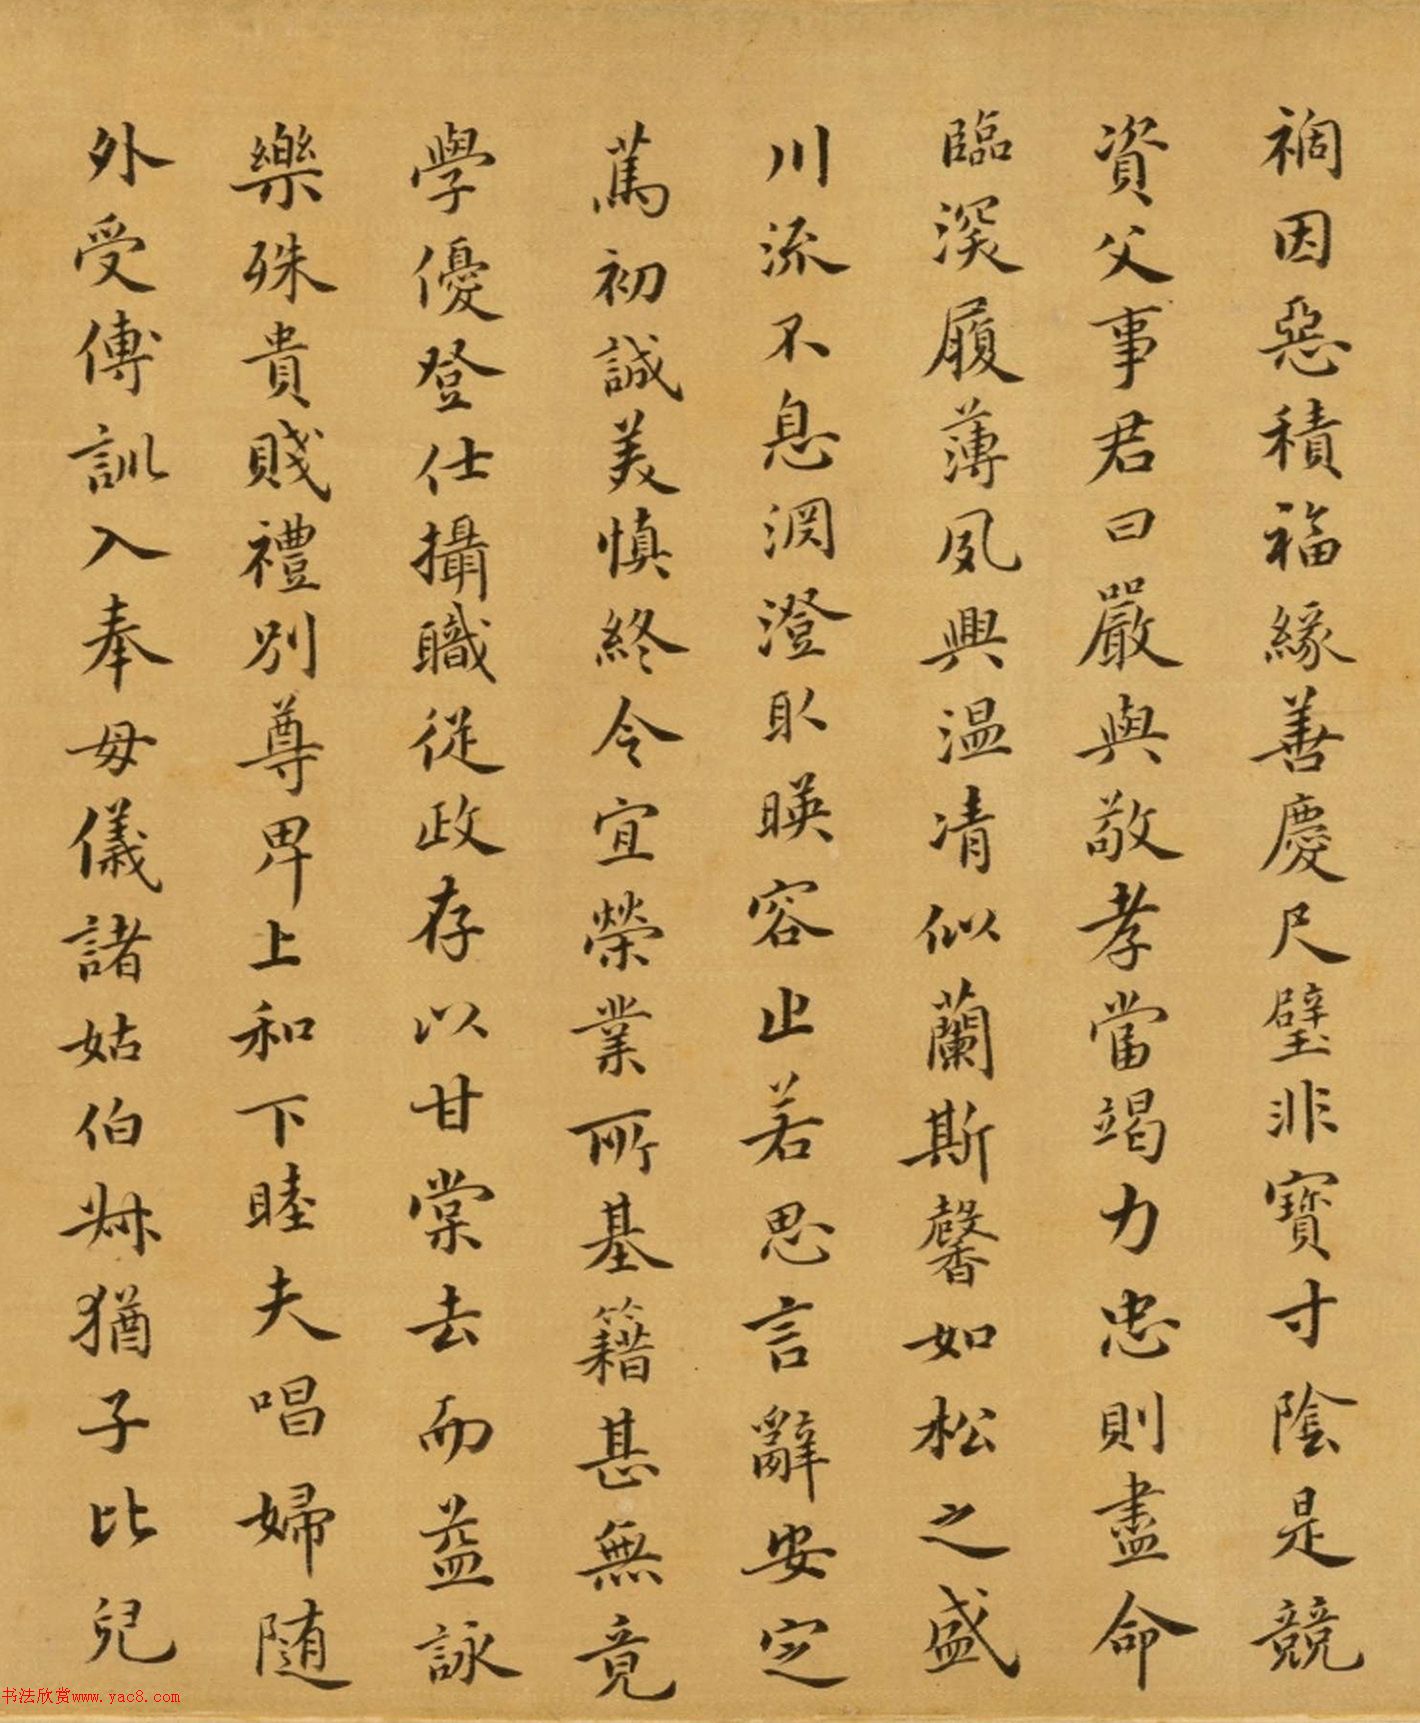 禍因惡積福緣善慶尺璧非寶寸陰是競
資父事君曰嚴與敬孝當竭力忠則盡命
臨深履薄夙興温凊似蘭斯馨如松之盛
川流不息淵澄取暎容止若思言辭安定
篤初誠美慎終令宜榮業所基籍甚無竟
學優登仕攝職從政存以甘棠去而益詠
樂殊貴賤禮別尊卑上和下睦夫唱婦随
外受傅訓入奉母儀諸姑伯叔猶子比兒
书法欣赏www.yac8.com